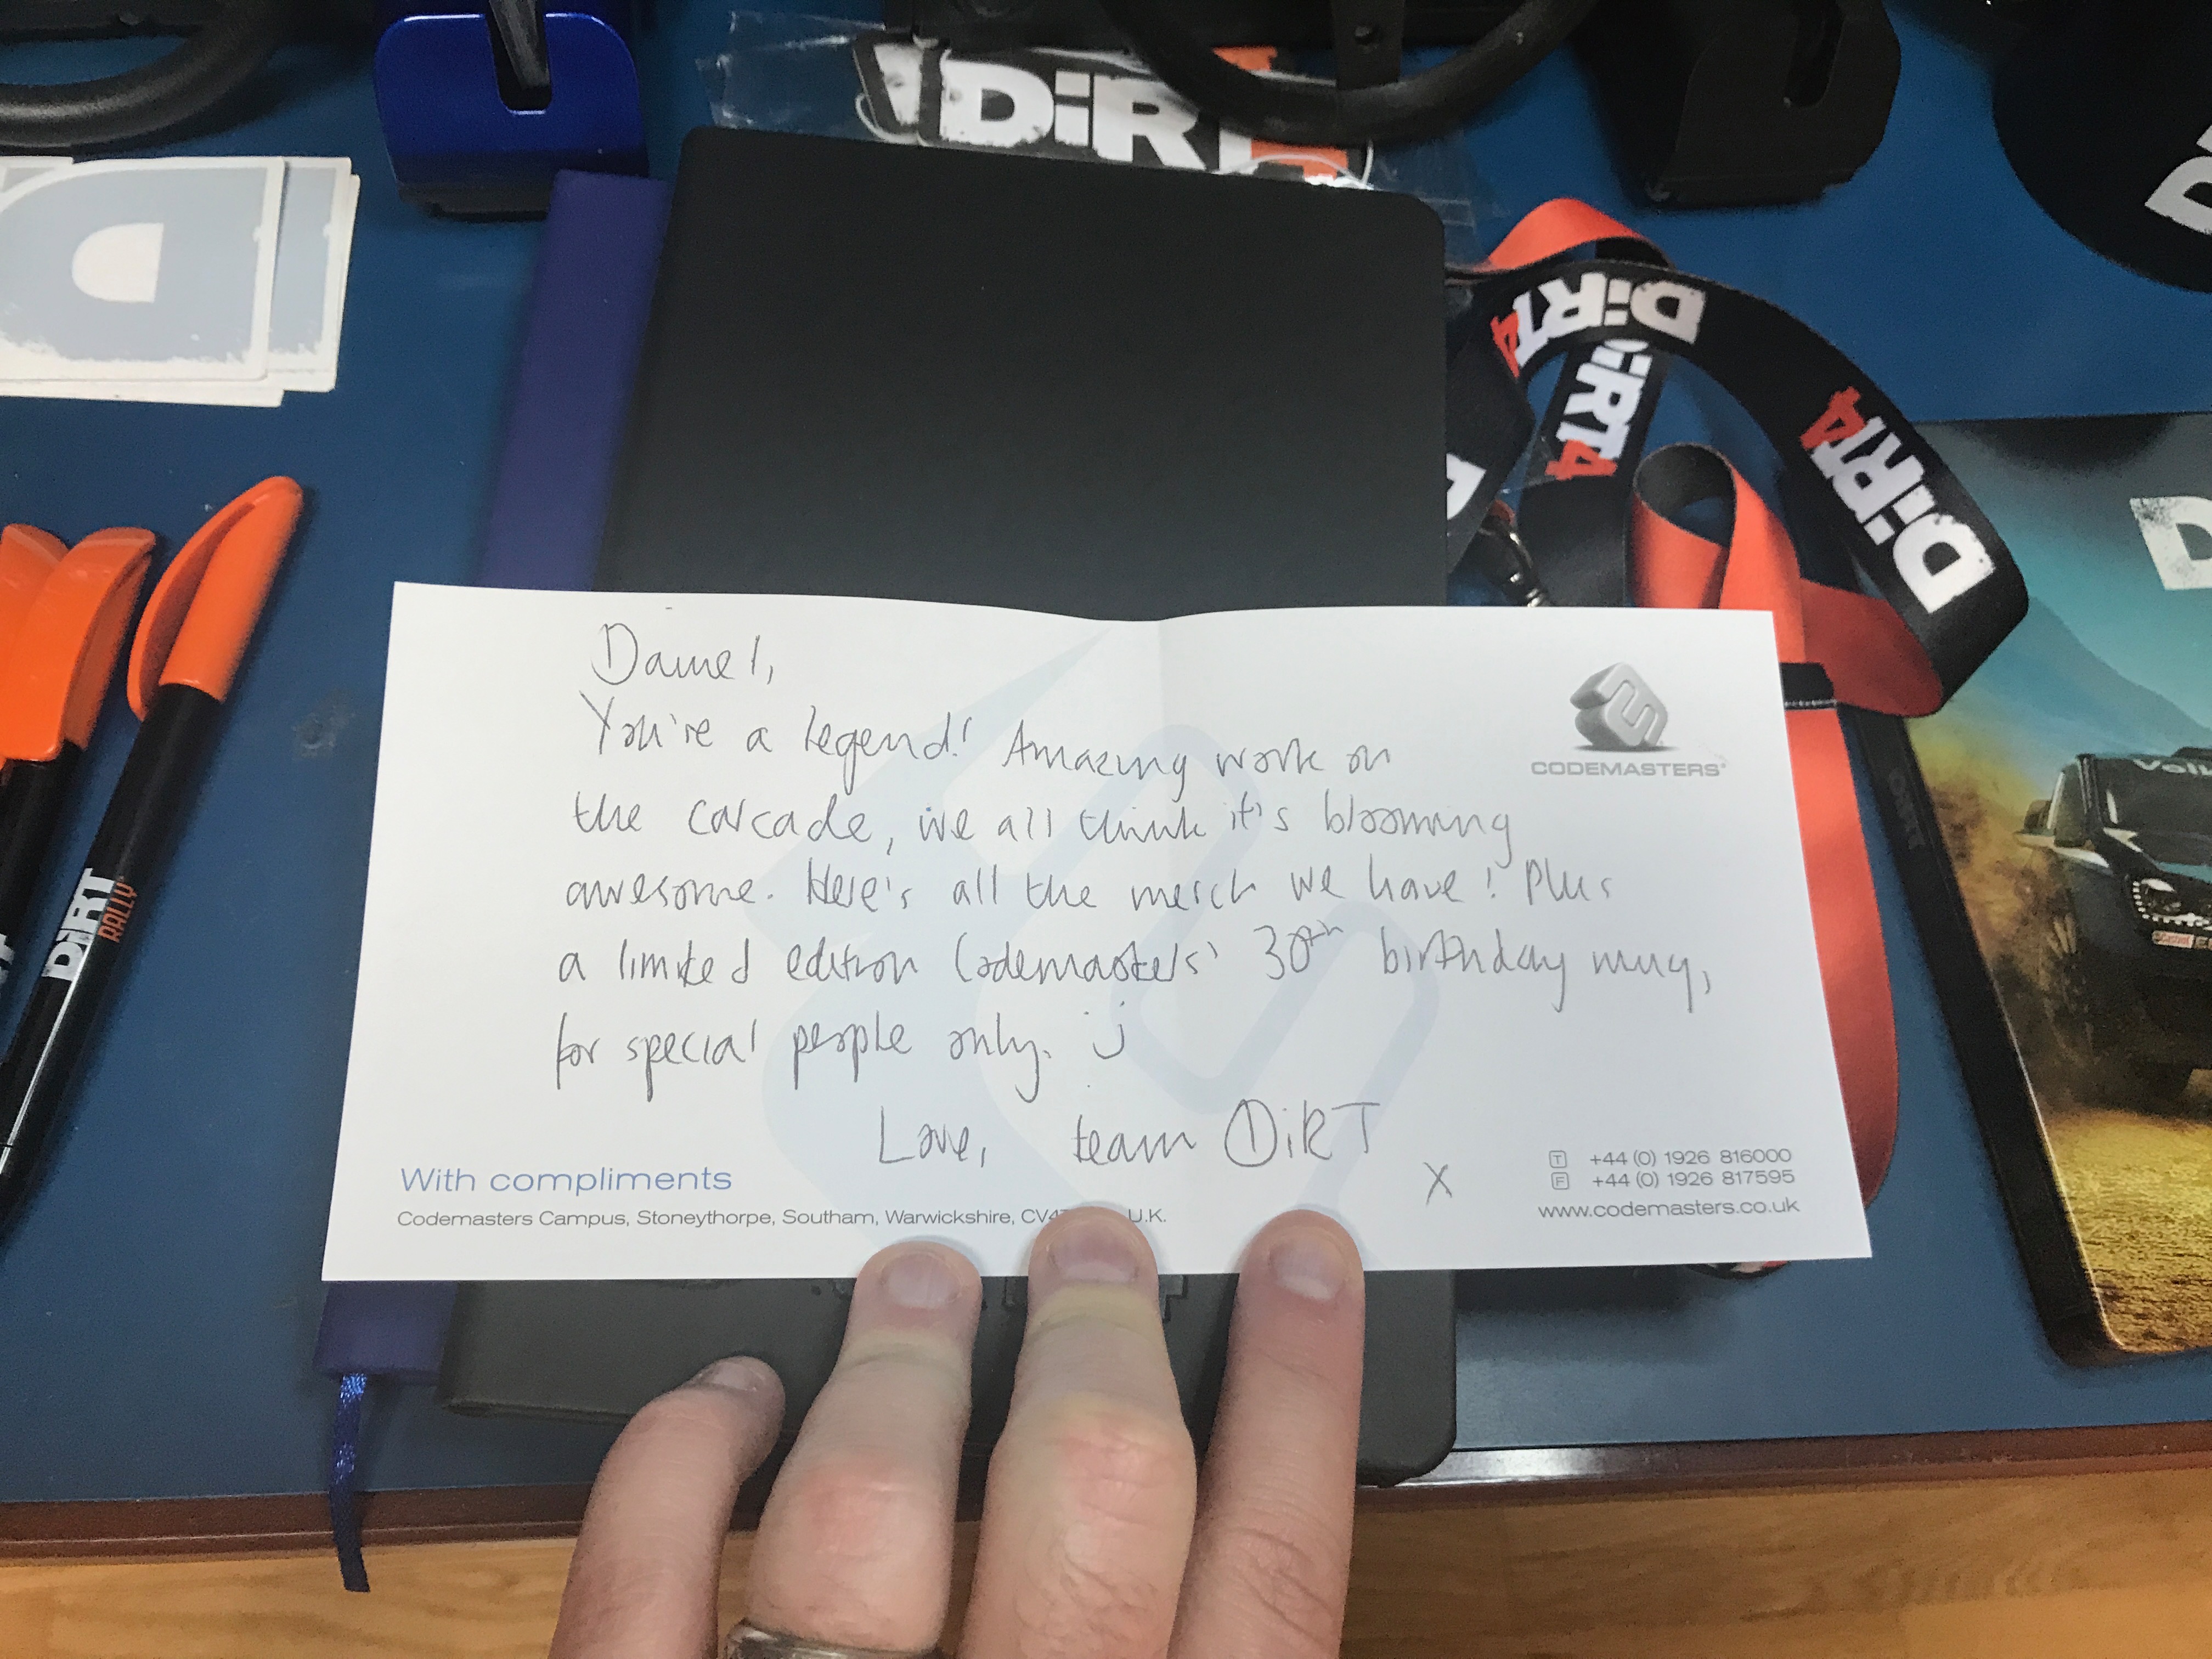 DiRT4
DiRT4
DiRT4
DiRT4
D
D
Daniel,
You're a legend! Amazing work on
the carcade, we all think it's blooming
awesome. Here's all the merch we have! Plus
a limited edition Codemasters' 30th birthday mug,
for special people only. :)
Love, team DiRT
x
CODEMASTERS®
With compliments
Codemasters Campus, Stoneythorpe, Southam, Warwickshire, CV4 U.K.
T +44 (0) 1926 816000
F +44 (0) 1926 817595
www.codemasters.co.uk
DiRT
RALLY
Castrol